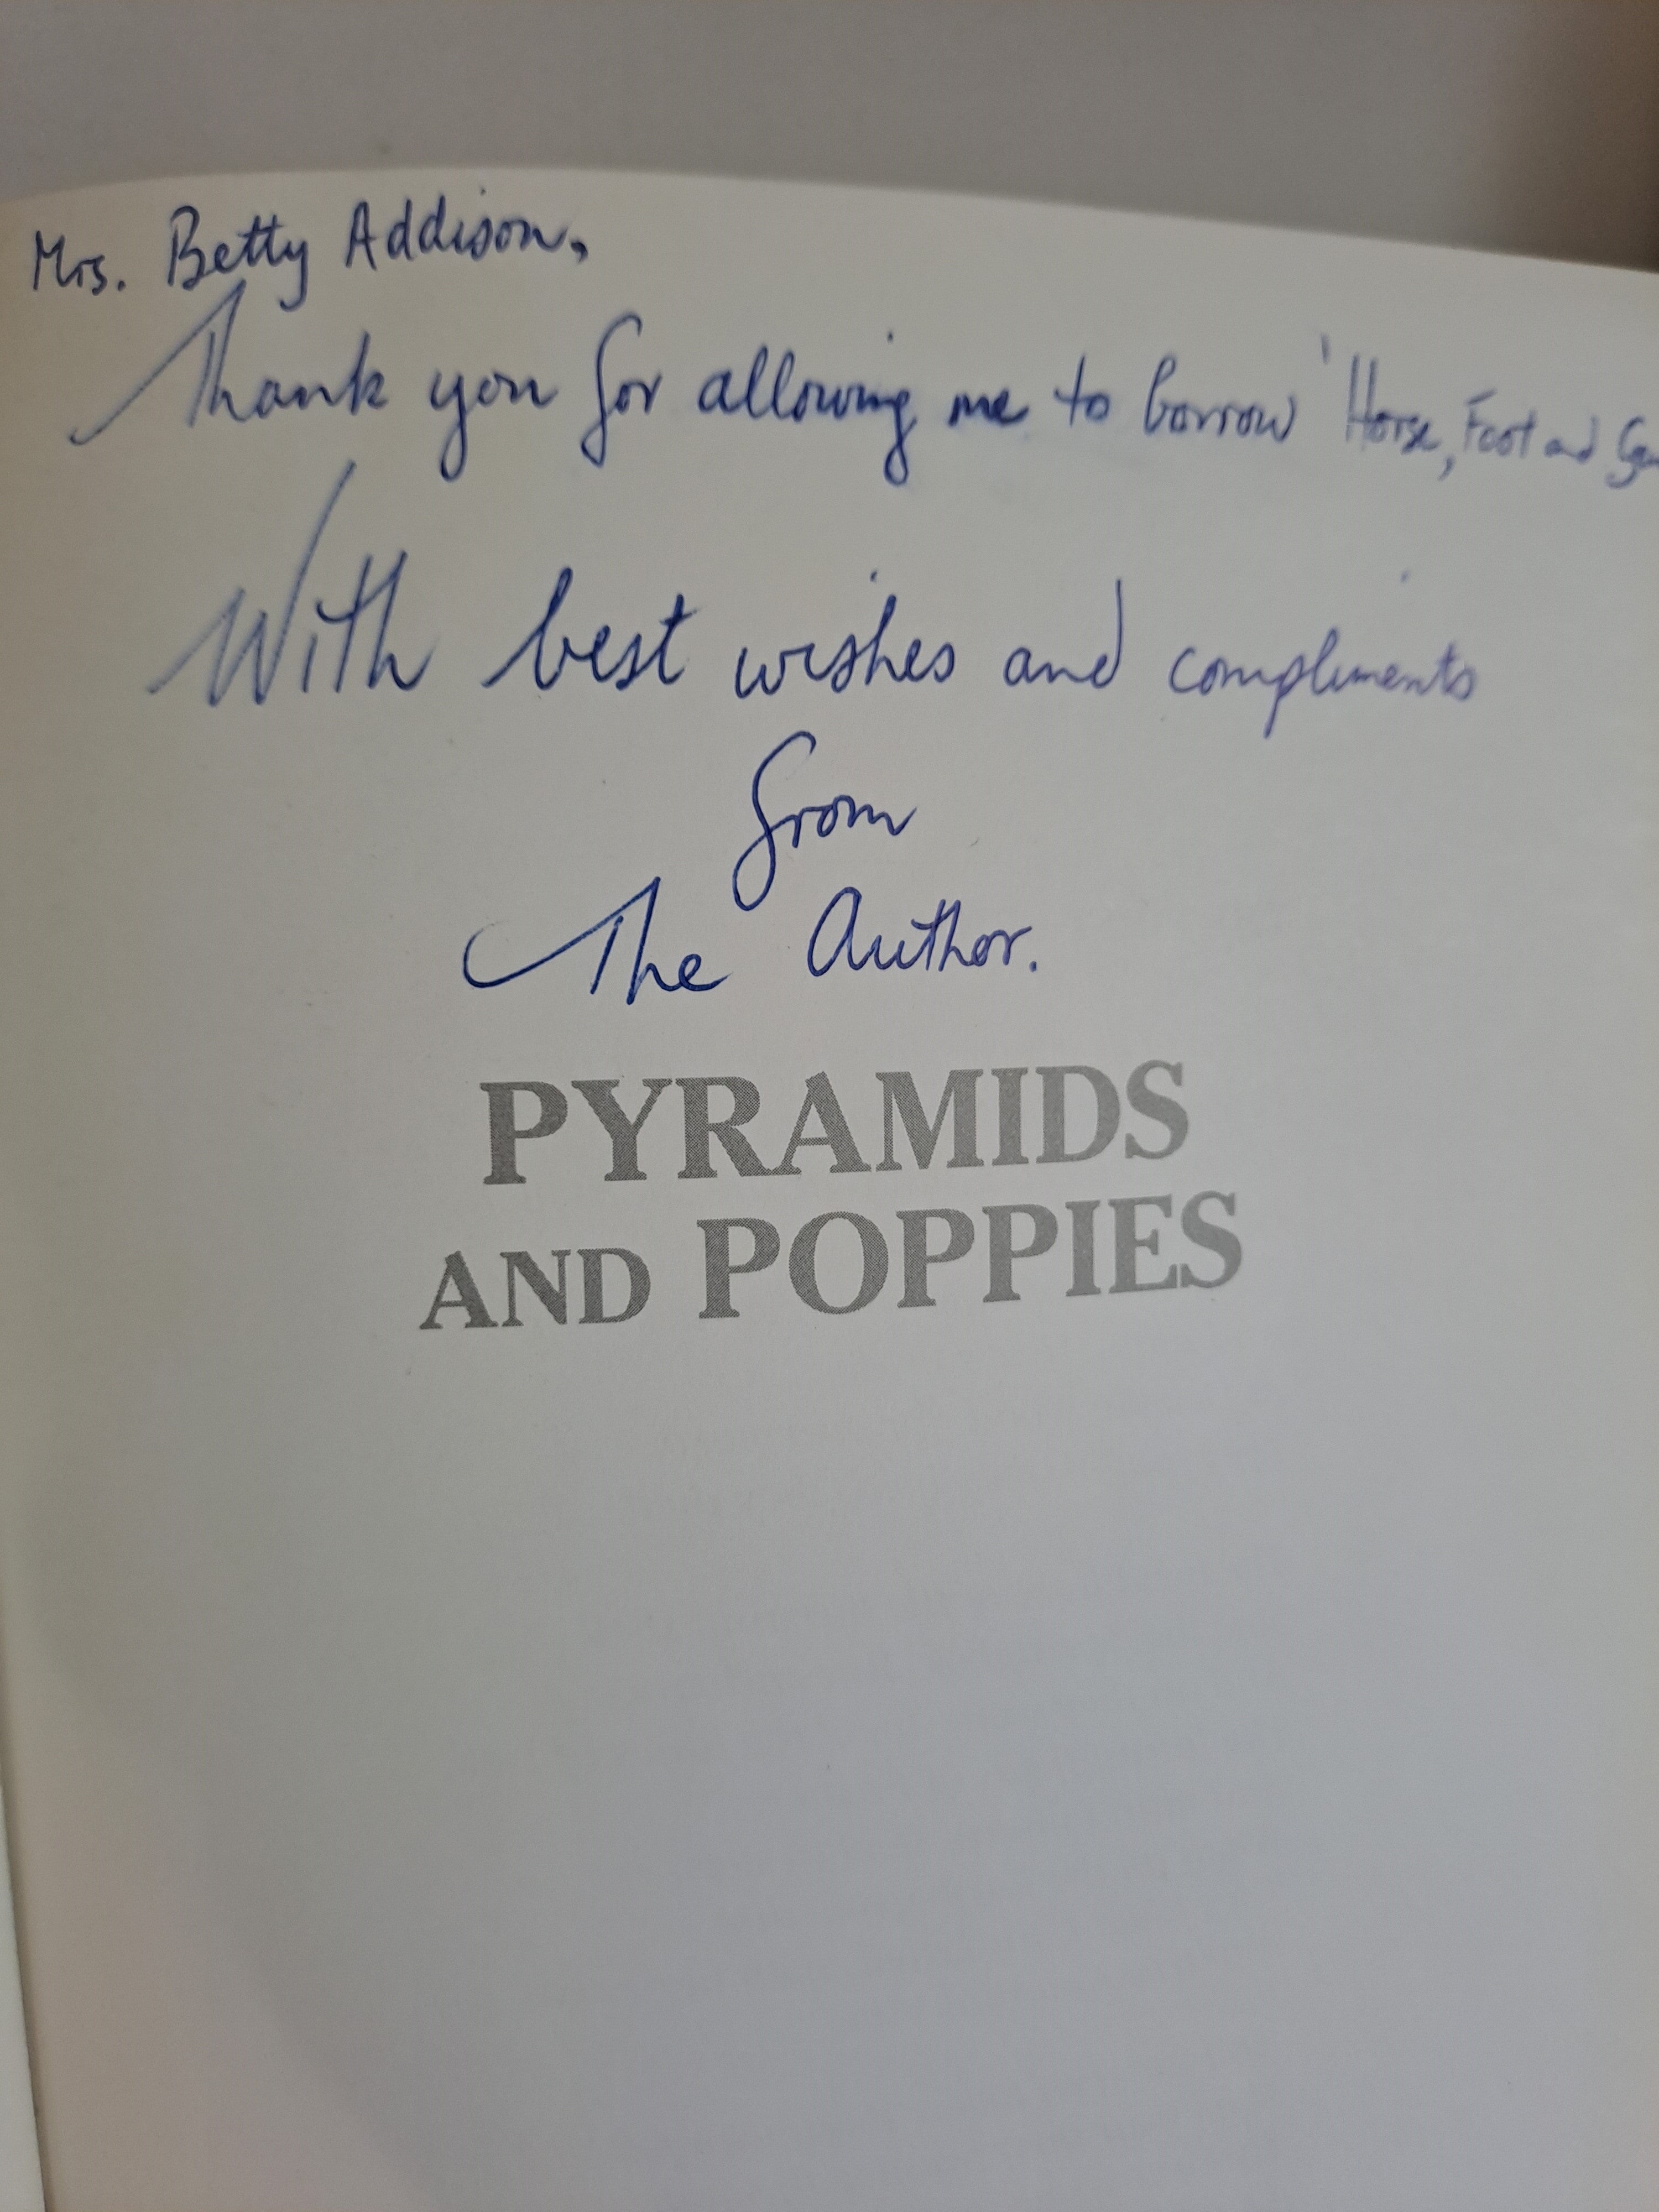 Mrs. Betty Addison,
Thank you for allowing me to borrow 'Horse, Foot and
With best wishes and compliments
from
The Author.
PYRAMIDS
AND POPPIES